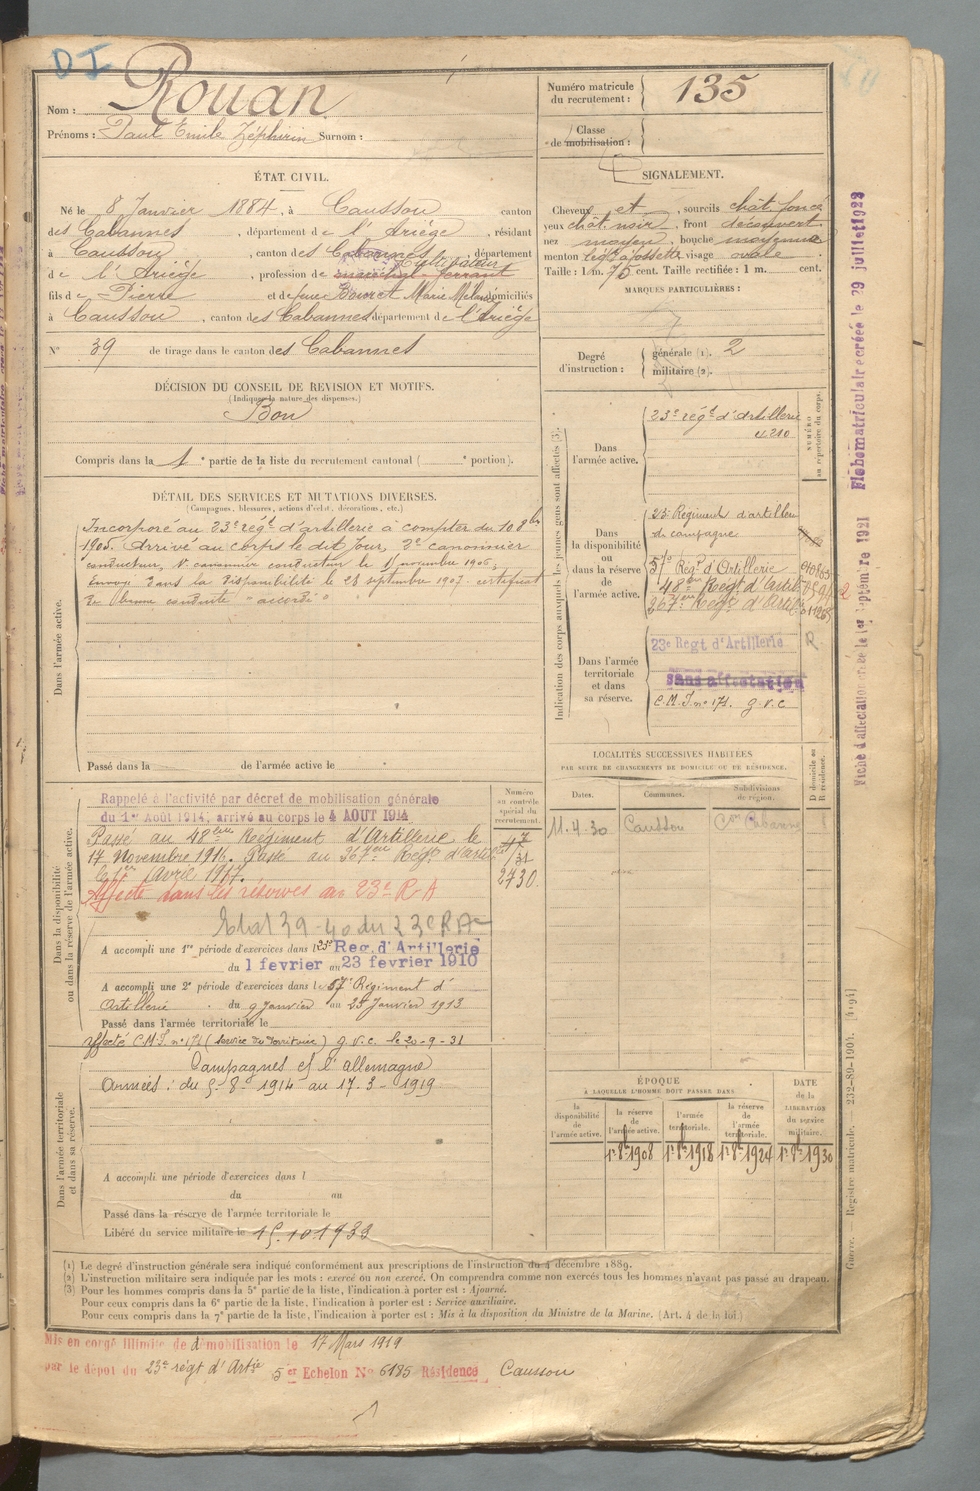 DI
Nom : Rouan
Prénoms : Paul Emile Zéphirin Surnom :
Numéro matricule du recrutement : 135
Classe de mobilisation :
ÉTAT CIVIL.
Né le 8 Janvier 1884, à Caussou canton
des Cabannes, département de l'Ariège, résidant
à Caussou, canton des Cabannes, département
de l'Ariège, profession de maréchal-ferrant cultivateur
fils de Pierre et de feue Marie domiciliés
à Caussou, canton des Cabannes département de l'Ariège
N° 39 de tirage dans le canton des Cabannes
SIGNALEMENT.
Cheveux et, sourcils chât. foncé
yeux chât. noir, front découvert
nez moyen, bouche moyenne
menton visage ovale
Taille : 1 m. 75 cent. Taille rectifiée : 1 m. cent.
MARQUES PARTICULIÈRES :
Degré d'instruction : générale (1). 2
militaire (2).
DÉCISION DU CONSEIL DE REVISION ET MOTIFS.
(Indiquer la nature des dispenses.)
Bon
Compris dans la 1e partie de la liste du recrutement cantonal ( e portion).
DÉTAIL DES SERVICES ET MUTATIONS DIVERSES.
(Campagnes, blessures, actions d'éclat, décorations, etc.)
Dans l'armée active.
Incorporé au 23e régt d'artillerie à compter du 10 8bre
1905. Arrivé au corps le dit jour, 2e canonnier
conducteur, 1er canonnier conducteur le novembre 1906,
Envoyé dans la disponibilité le 28 septembre 1907. certificat
de bonne conduite "accordé"
Passé dans la de l'armée active le
Indication des corps auxquels les jeunes gens sont affectés (3).
NUMÉRO au répertoire du corps.
Dans l'armée active.
23e régt d'Artillerie
Dans la disponibilité ou dans la réserve de l'armée active.
23e Régiment d'artillerie
de campagne
57e Régt d'Artillerie
48ème Régt d'Artil
367ème Régt d'Artil
Dans l'armée territoriale et dans sa réserve.
23e Regt d'Artillerie
R
Sans affectation
C.M.I. n° 171. g.v.c
LOCALITÉS SUCCESSIVES HABITÉES
PAR SUITE DE CHANGEMENTS DE DOMICILE OU DE RÉSIDENCE.
Dates. Communes. Subdivisions de région. D domicile ou R résidence.
11.4.30 Caussou Con Cabannes
Dans la disponibilité ou dans la réserve de l'armée active.
Numéro au contrôle spécial du recrutement.
Rappelé à l'activité par décret de mobilisation générale
du 1er Août 1914, arrivé au corps le 4 AOUT 1914
Passé au 48ème Régiment d'Artillerie le
17 Novembre 1916. Passé au 367ème Régt d'artie
le 1er Avril 1917.
2730
Affecté dans les réserves au 23e R.A
Etat 39-40 du 23e RAC
A accompli une 1re période d'exercices dans l 23e Reg. d'Artillerie
du 1 fevrier au 23 fevrier 1910
A accompli une 2e période d'exercices dans le 57e Régiment d'
Artillerie du 9 Janvier au 25 Janvier 1913
Passé dans l'armée territoriale le
affecté C.M.I. n° 171 (service du Territoire) g.v.c. le 20-9-31
Dans l'armée territoriale et dans sa réserve.
Campagnes contre l'allemagne
Armées : du 5-8-1914 au 17-3-1919
A accompli une période d'exercices dans l
du au
Passé dans la réserve de l'armée territoriale le
Libéré du service militaire le 15.10 1933
ÉPOQUE
À LAQUELLE L'HOMME DOIT PASSER DANS
la disponibilité de l'armée active. la réserve de l'armée active. l'armée territoriale. la réserve de l'armée territoriale.
DATE de la LIBÉRATION du service militaire.
1er 8bre 1908 1er 8bre 1918 1er 8bre 1924 1er 8bre 1930
(1) Le degré d'instruction générale sera indiqué conformément aux prescriptions de l'instruction du 4 décembre 1889.
(2) L'instruction militaire sera indiquée par les mots : exercé ou non exercé. On comprendra comme non exercés tous les hommes n'ayant pas passé au drapeau.
(3) Pour les hommes compris dans la 5e partie de la liste, l'indication à porter est : Ajourné.
Pour ceux compris dans la 6e partie de la liste, l'indication à porter est : Service auxiliaire.
Pour ceux compris dans la 7e partie de la liste, l'indication à porter est : Mis à la disposition du Ministre de la Marine. (Art. 4 de la loi.)
Mis en congé illimité de démobilisation le 17 Mars 1919
par le dépôt du 23e régt d'Artie 5er Echelon No 6185 Résidence Caussou
Fiche d'affectation créée le 1er septembre 1921 Fiche matriculaire créée le 29 juillet 1923
Guerre. — Registre matricule. — 232-89-1904. [4194]